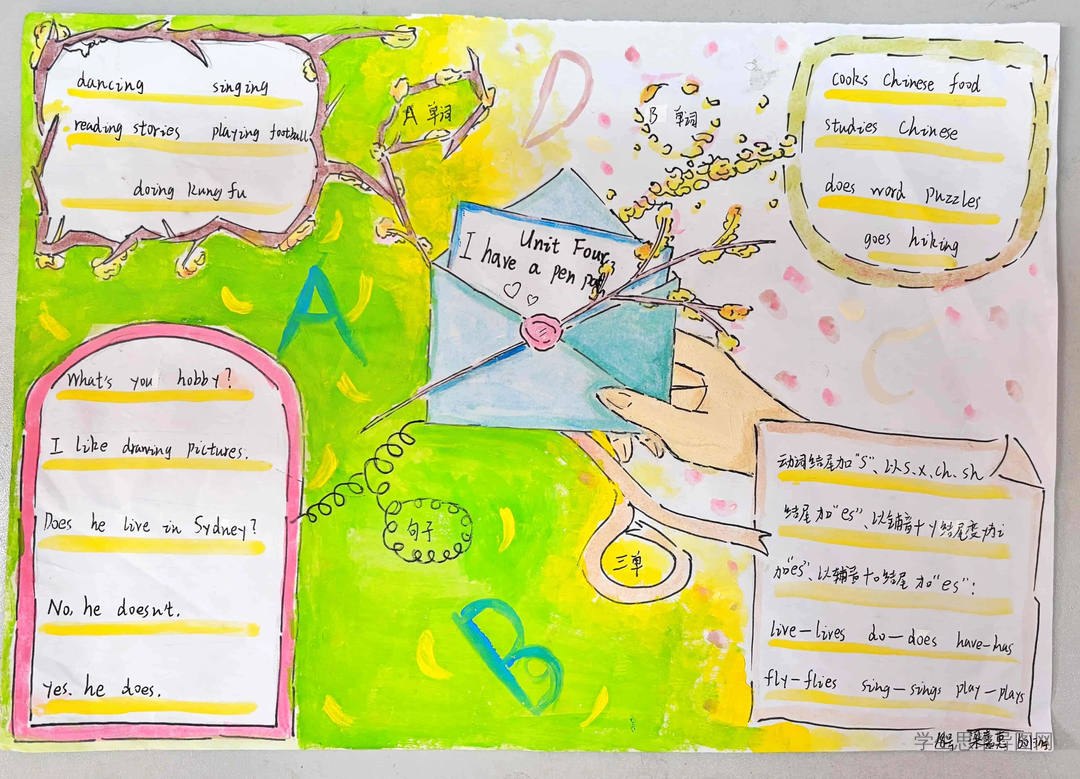 dancing singing
reading stories playing football
doing kung fu
A 单词
D
B 单词
cooks Chinese food
studies Chinese
does word puzzles
goes hiking
Unit Four
I have a pen pal
A
C
What's you hobby?
I like drawing pictures.
Does he live in Sydney?
No, he doesn't.
yes. he does.
句子
B
三单
动词结尾加"s"、以s.x.ch.sh
结尾加"es"、以辅音+y结尾变y为i
加"es"、以辅音+o结尾加"es":
live-lives do-does have-has
fly-flies sing-sings play-plays